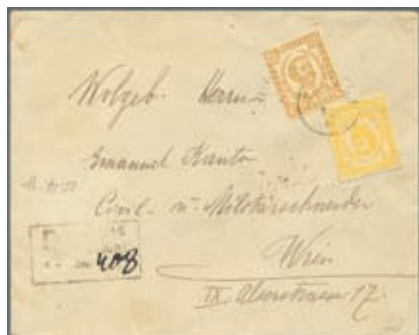 Wolgeb Herrn
Emanuel Kanto
Civil- u- Militärschneider
Wien
408
IX. Alserstrasse 17.